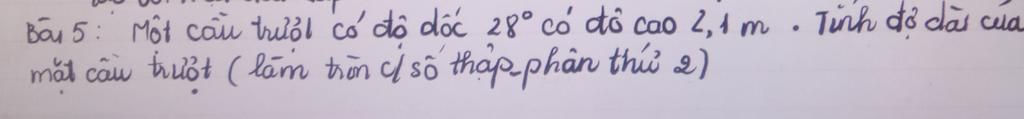 Bài 5: Một cầu trượt có độ dốc 28° có độ cao 2,1 m. Tính độ dài của
mặt cầu trượt (làm tròn c/s số thập phân thứ 2)